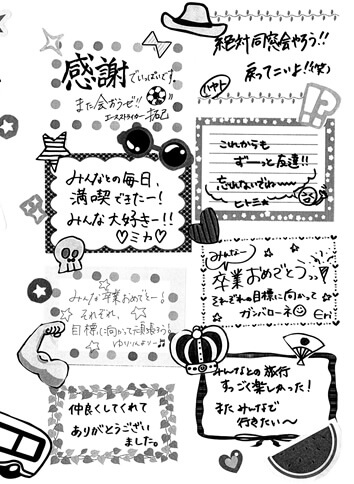 感謝
でいっぱいです。
また会おうぜ!!
エースストライカー 拓巳
みんなとの毎日、
満喫できたー!
みんな大好きー!!
♡ミカ♡
みんな卒業おめでとー!
それぞれ、
目標に向かって頑張ろう!
ゆりりんより〜♪
仲良くしてくれて
ありがとうござい
ました。
絶対同窓会やろう!!
戻ってこいよ!(笑)
ハヤト
!?
これからも
ずーっと友達!!
忘れないでね〜
ヒトミ
みんなー
卒業おめでとうっっ!
それぞれの目標に向かって
ガンバローネ☺ Eri
みんなとの旅行
すっごく楽しかった!
またみんなで
行きたい〜